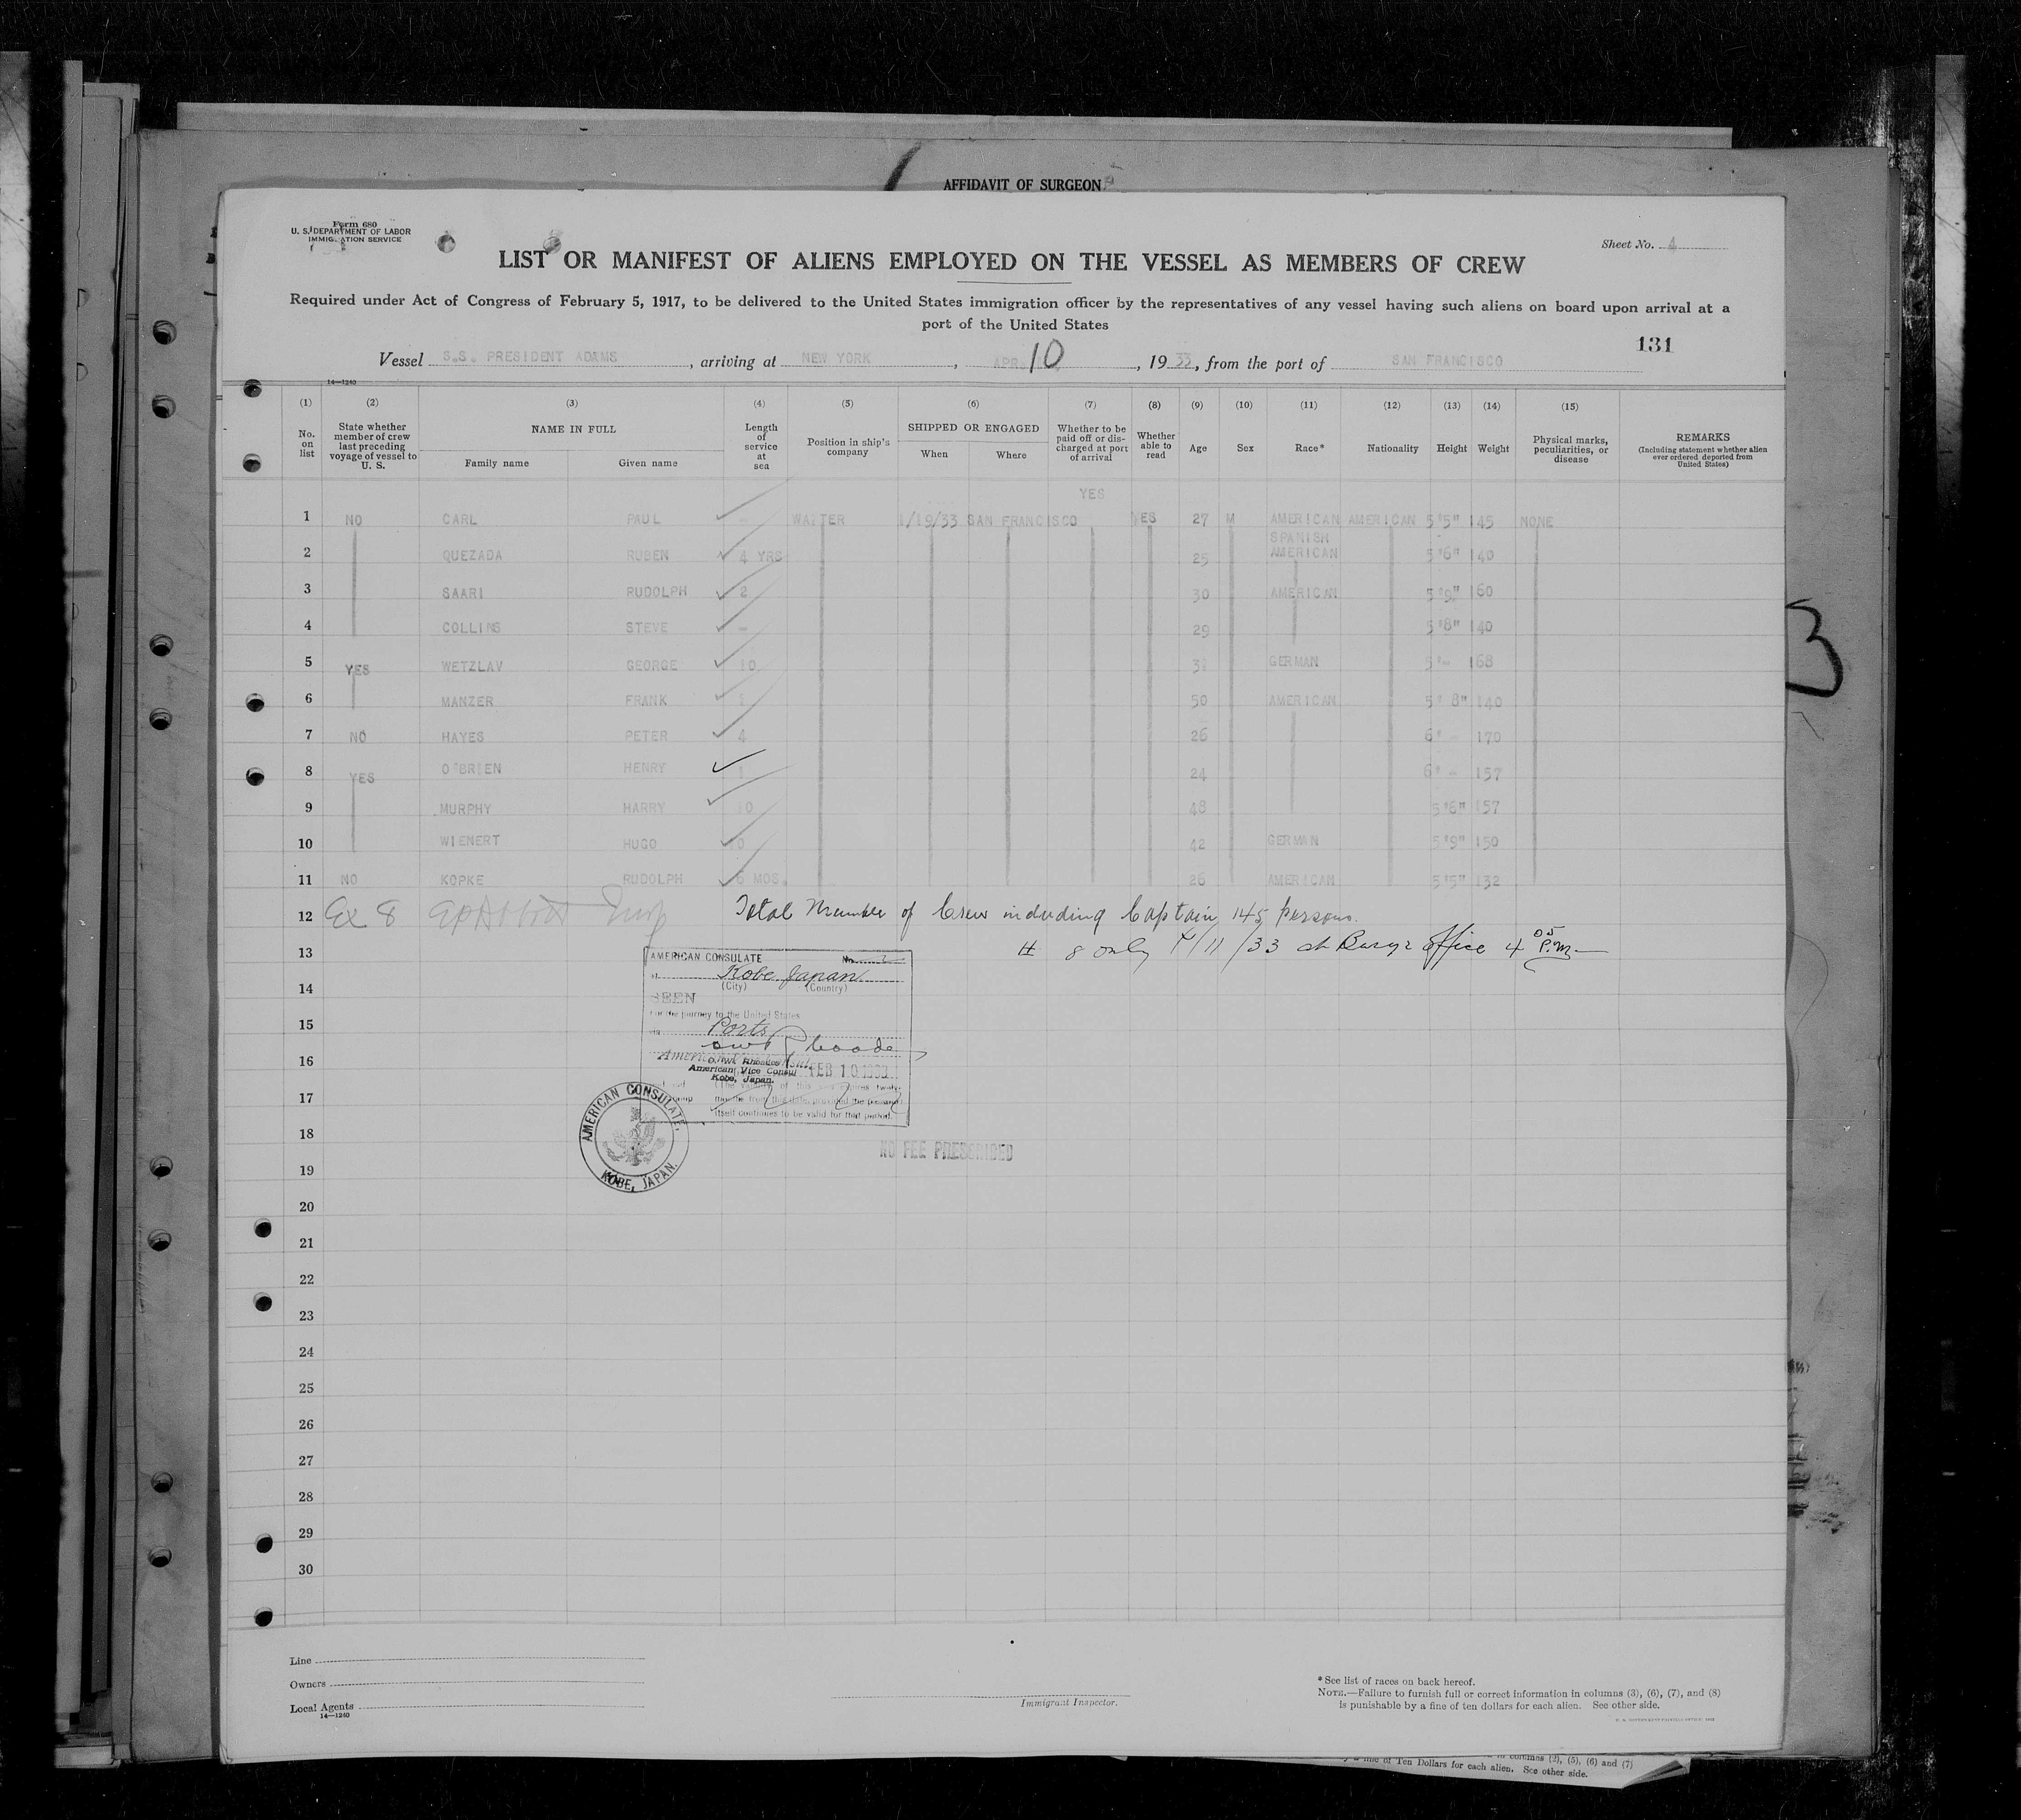 AFFIDAVIT OF SURGEON
Form 680
U. S. DEPARTMENT OF LABOR
IMMIGRATION SERVICE
Sheet No. 4
LIST OR MANIFEST OF ALIENS EMPLOYED ON THE VESSEL AS MEMBERS OF CREW
Required under Act of Congress of February 5, 1917, to be delivered to the United States immigration officer by the representatives of any vessel having such aliens on board upon arrival at a
port of the United States
131
Vessel S.S. PRESIDENT ADAMS, arriving at NEW YORK, APR. 10, 1933, from the port of SAN FRANCISCO
14—1240
(1) (2) (3) (4) (5) (6) (7) (8) (9) (10) (11) (12) (13) (14) (15)
No. on list
State whether member of crew last preceding voyage of vessel to U. S.
NAME IN FULL
Family name Given name
Length of service at sea
Position in ship's company
SHIPPED OR ENGAGED
When Where
Whether to be paid off or discharged at port of arrival
Whether able to read
Age
Sex
Race*
Nationality
Height
Weight
Physical marks, peculiarities, or disease
REMARKS
(Including statement whether alien ever ordered deported from United States)
YES
1 NO CARL PAUL – WAITER 1/19/33 SAN FRANCISCO YES 27 M AMERICAN AMERICAN 5'5" 145 NONE
2 QUEZADA RUBEN 4 YRS 25 SPANISH AMERICAN 5'6" 140
3 SAARI RUDOLPH 2 30 AMERICAN 5'9" 160
4 COLLINS STEVE – 29 5'8" 140
5 YES WETZLAV GEORGE 10 GERMAN 5'- 168
6 MANZER FRANK 1 50 AMERICAN 5' 8" 140
7 NO HAYES PETER 4 26 6' - 170
8 YES O'BRIEN HENRY 1 24 6' - 157
9 MURPHY HARRY 10 48 5'6" 157
10 WIENERT HUGO 42 GERMAN 5'9" 150
11 NO KOPKE RUDOLPH 6 MOS. 26 AMERICAN 5'5" 132
12 Ex 8 Total Number of Crew including Captain 145 persons.
13 # 8 only 4/11/33 at office 4 05 P.M.
14
15
16
17
18
19
20
21
22
23
24
25
26
27
28
29
30
AMERICAN CONSULATE No.
at Kobe Japan
(City) (Country)
SEEN
For the journey to the United States
via Ports
O. W. Rhoades
American Vice Consul
Kobe, Japan.
FEB 10 1933
(The validity of this visa expires twelve
months from this date, provided the passport
itself continues to be valid for that period.
AMERICAN CONSULATE,
KOBE, JAPAN.
NO FEE PRESCRIBED
3
Line
Owners
Local Agents
14—1240
Immigrant Inspector.
* See list of races on back hereof.
NOTE.—Failure to furnish full or correct information in columns (3), (6), (7), and (8)
is punishable by a fine of ten dollars for each alien. See other side.
columns (2), (5), (6) and (7)
fine of Ten Dollars for each alien. See other side.